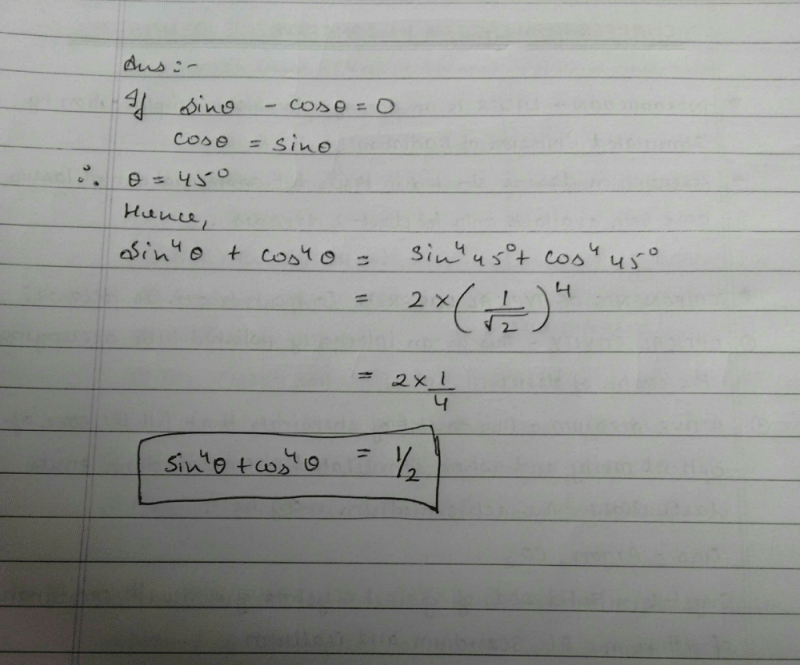 Ans :-
If sinθ - cosθ = 0
cosθ = sinθ
∴ θ = 45°
Hence,
sin⁴θ + cos⁴θ = sin⁴45° + cos⁴45°
= 2 × (1/√2)⁴
= 2 × 1/4
sin⁴θ + cos⁴θ = 1/2